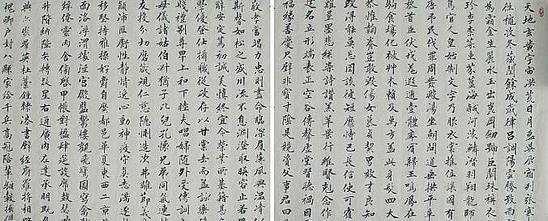 天地玄黃宇宙洪荒日月盈昃辰宿列張寒
往秋收冬藏閏餘成歲律呂調陽雲騰致雨
為霜金生麗水玉出崑岡劍號巨闕珠稱夜
珍李柰菜重芥薑海鹹河淡鱗潛羽翔龍師
官人皇始制文字乃服衣裳推位讓國有虞
弔民伐罪周發殷湯坐朝問道垂拱平章
臣伏戎羌遐邇壹體率賓歸王鳴鳳在
食場化被草木賴及萬方蓋此身髮四大五
恭惟鞠養豈敢毀傷女慕貞絜男效才良知
必改得能莫忘罔談彼短靡恃己長信使可覆
器欲難量墨悲絲染詩讚羔羊景行維賢
建名立形端表正空谷傳聲虛堂習聽禍因
福緣善慶尺璧非寶寸陰是競資父事君曰
敬孝當竭力忠則盡命臨深履薄夙興溫凊
斯馨如松之盛川流不息淵澄取映容止若
辭安定篤初誠美慎終宜令榮業所基籍甚
學優登仕攝職從政存以甘棠去而益詠樂
賤禮別尊卑上和下睦夫唱婦隨外受傅訓
母儀諸姑伯叔猶子比兒孔懷兄弟同氣連
友投分切磨箴規仁慈隱惻造次弗離節義
顛沛匪虧性靜情逸心動神疲守真志滿逐
移堅持雅操好爵自縻都邑華夏東西二京
面洛浮渭據涇宮殿盤鬱樓觀飛驚圖寫禽
綵仙靈丙舍傍啟甲帳對楹肆筵設席鼓瑟
階納陛弁轉疑星右通廣內左達承明既集
典亦聚群英杜稿鍾隸漆書壁經府羅將相
槐卿戶封八縣家給千兵高冠陪輦驅轂振